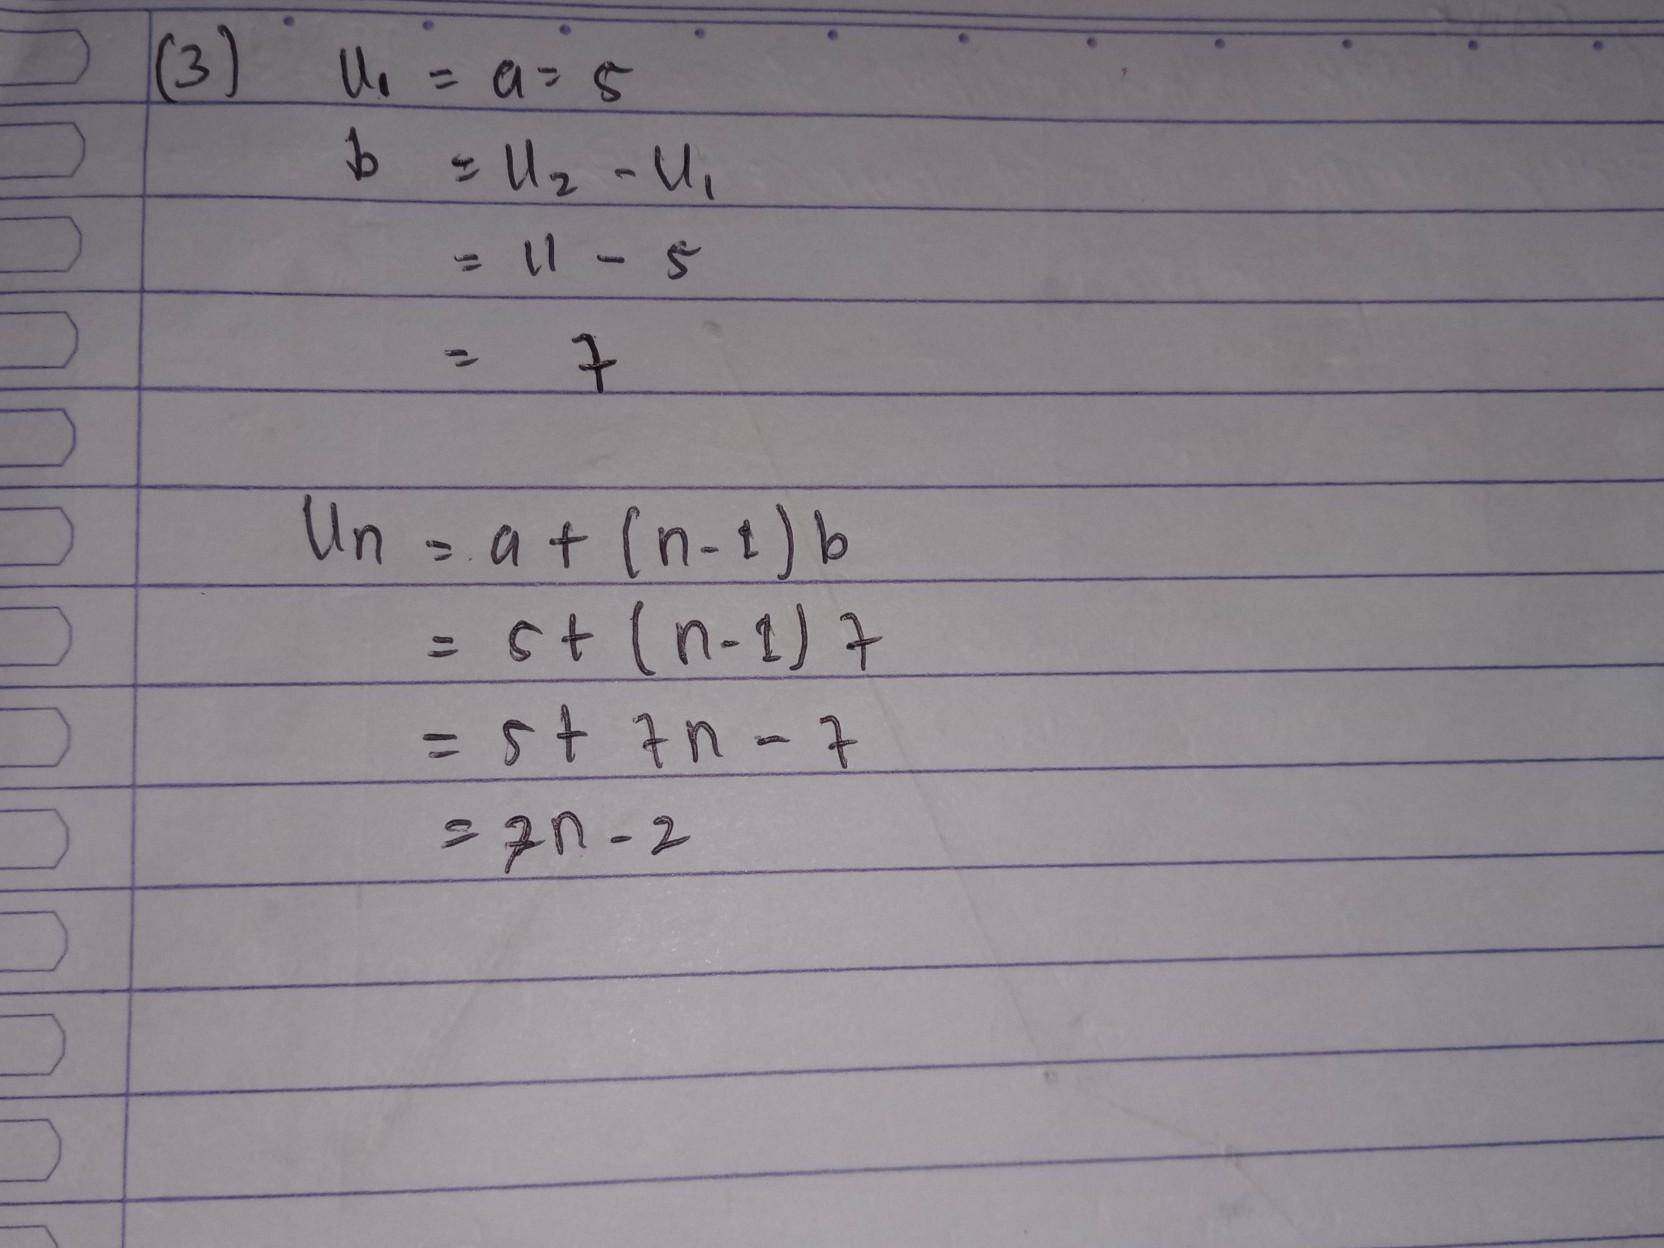 (3) U₁ = a = 5
b = U₂ - U₁
= 11 - 5
= 7
Un = a + (n-1) b
= 5 + (n-1) 7
= 5 + 7n - 7
= 7n - 2